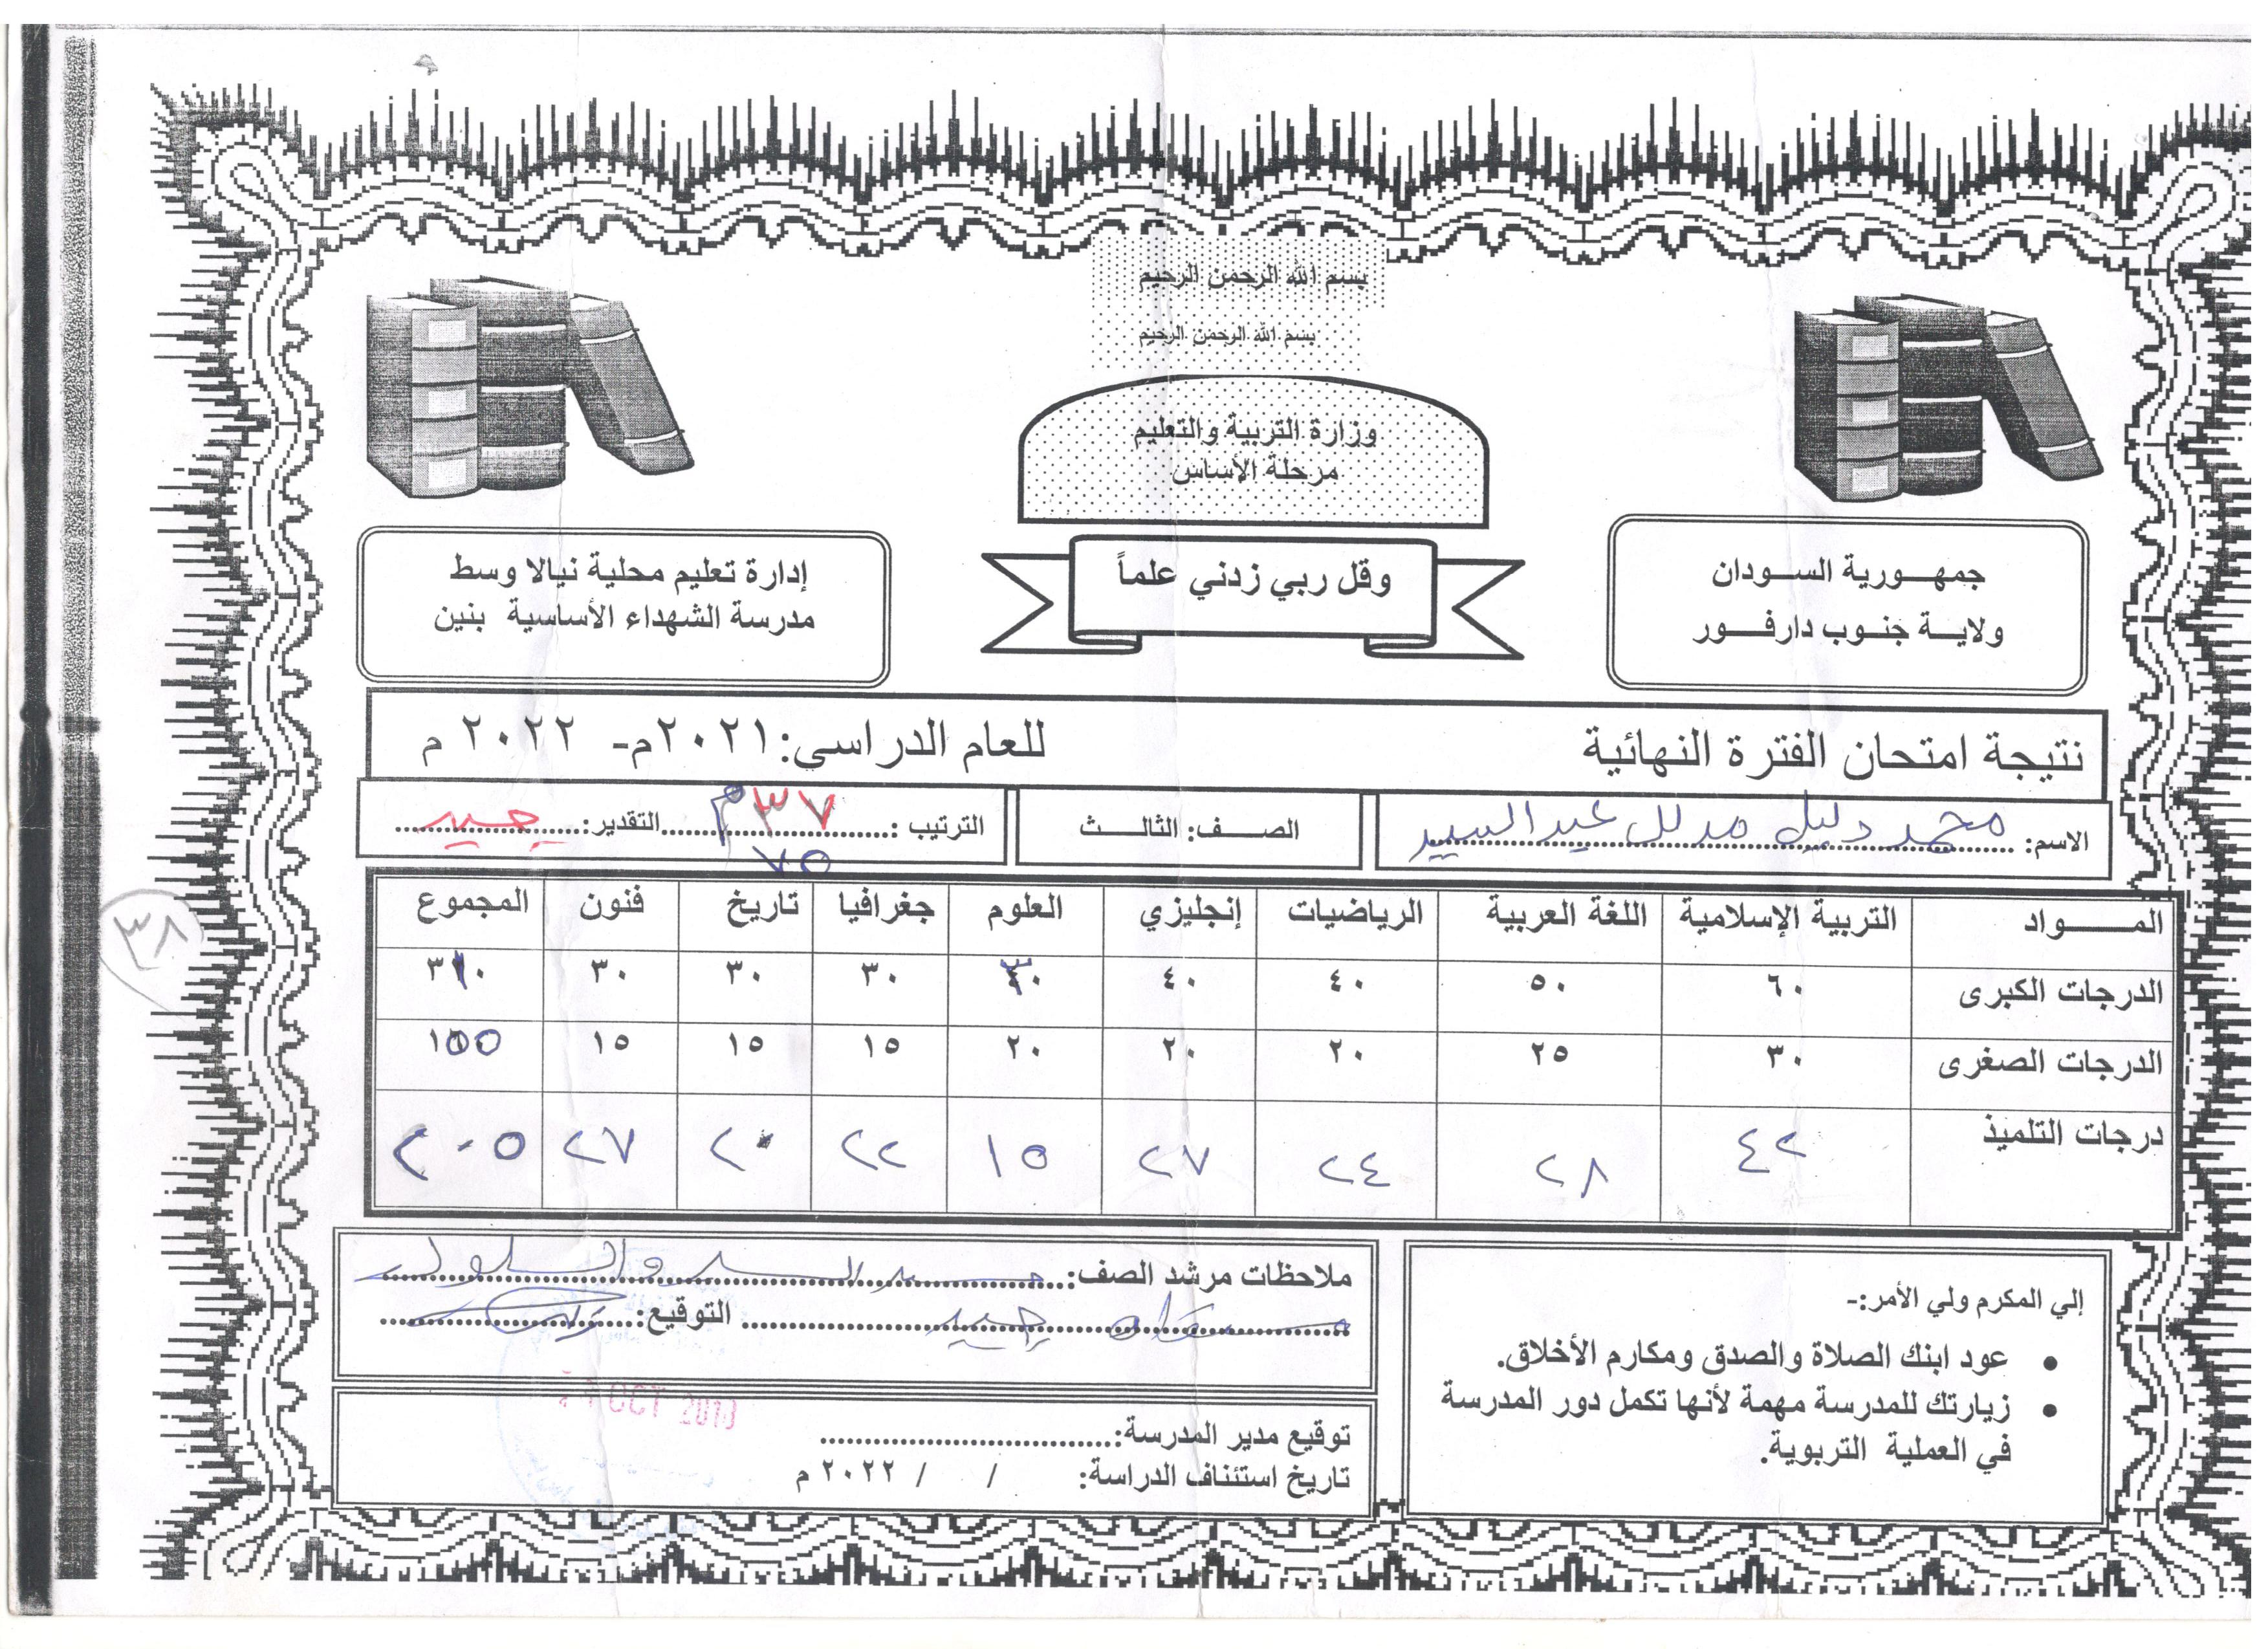 بسم الله الرحمن الرحيم
بسم الله الرحمن الرحيم
وزارة التربية والتعليم
مرحلة الأساس
جمهـــورية الســودان
ولايـــة جنــوب دارفــــور
وقل ربي زدني علماً
إدارة تعليم محلية نيالا وسط
مدرسة الشهداء الأساسية بنين
نتيجة امتحان الفترة النهائية للعام الدراسي: ٢٠٢١م- ٢٠٢٢ م
الاسم: محمد دليل مدلل عبد السيد الصــــف: الثالـــث الترتيب: ٣٧م التقدير: جيد
٧٥
المـــــــواد التربية الإسلامية اللغة العربية الرياضيات إنجليزي العلوم جغرافيا تاريخ فنون المجموع
الدرجات الكبرى ٦٠ ٥٠ ٤٠ ٤٠ ٣٠ ٣٠ ٣٠ ٣١٠
الدرجات الصغرى ٣٠ ٢٥ ٢٠ ٢٠ ٢٠ ١٥ ١٥ ١٥ ١٥٥
درجات التلميذ ٤٢ ٢٨ ٢٤ ٢٧ ١٥ ٢٢ ٢٠ ٢٧ ٢٠٥
٣٨
إلي المكرم ولي الأمر:-
• عود ابنك الصلاة والصدق ومكارم الأخلاق.
• زيارتك للمدرسة مهمة لأنها تكمل دور المدرسة
في العملية التربوية.
ملاحظات مرشد الصف: والسلوك
جيد التوقيع:
OCT
توقيع مدير المدرسة:
تاريخ استئناف الدراسة: / / ٢٠٢٢ م